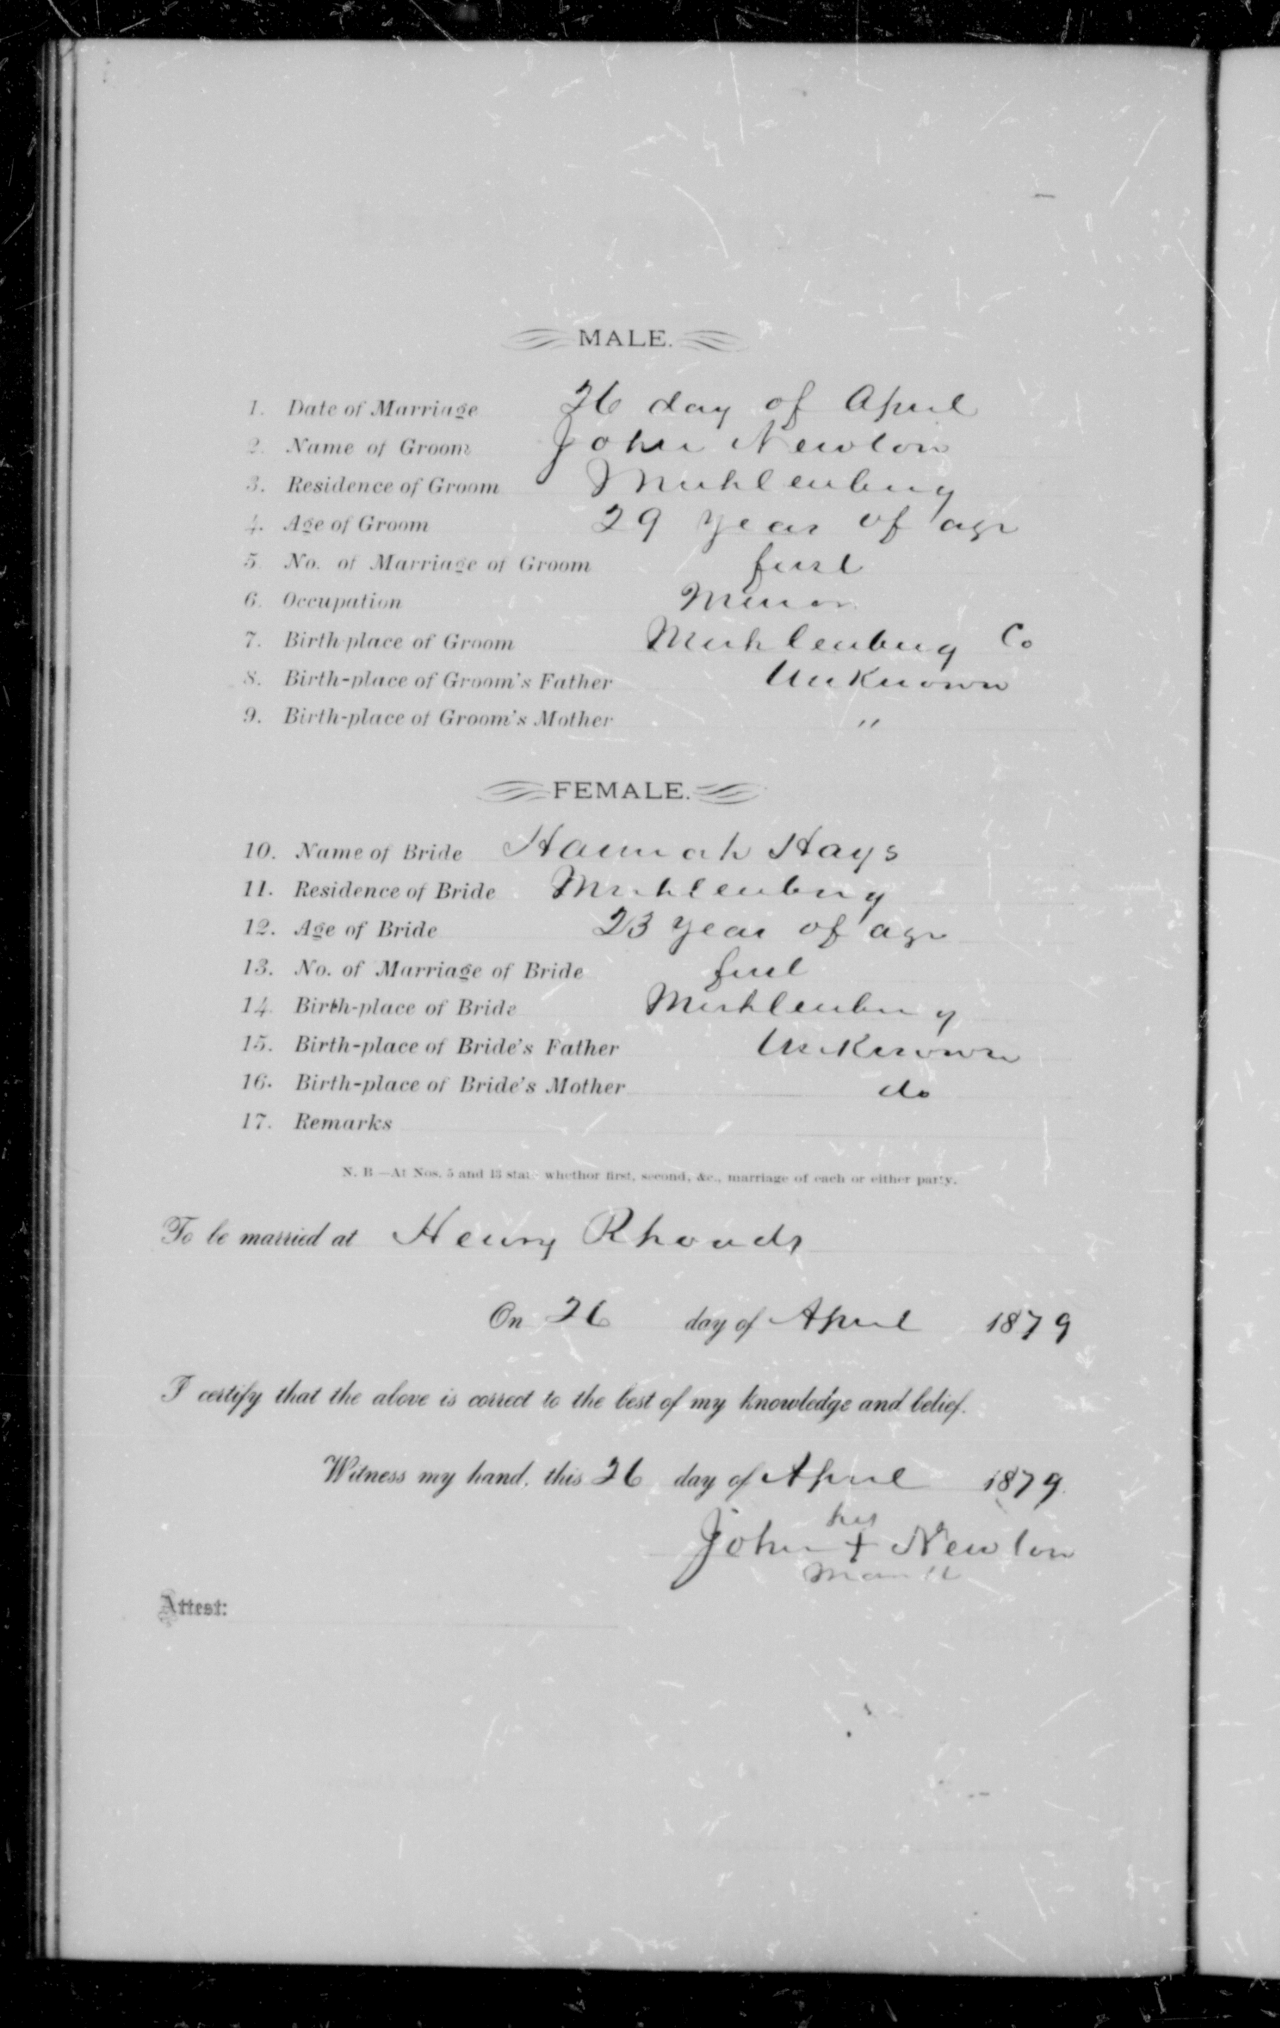 MALE.
1. Date of Marriage 26 day of April
2. Name of Groom John Newton
3. Residence of Groom Muhlenburg
4. Age of Groom 29 years of age
5. No. of Marriage of Groom first
6. Occupation Minor
7. Birth-place of Groom Muhlenburg Co
8. Birth-place of Groom's Father Unknown
9. Birth-place of Groom's Mother "
FEMALE.
10. Name of Bride Hannah Hays
11. Residence of Bride Muhlenburg
12. Age of Bride 23 year of age
13. No. of Marriage of Bride first
14. Birth-place of Bride Muhlenburg
15. Birth-place of Bride's Father Unknown
16. Birth-place of Bride's Mother do
17. Remarks
N. B.—At Nos. 5 and 13 state whether first, second, &c., marriage of each or either party.
To be married at Henry Rhoads
On 26 day of April 1879
I certify that the above is correct to the best of my knowledge and belief.
Witness my hand, this 26 day of April 1879
his
John + Newton
mark
Attest: